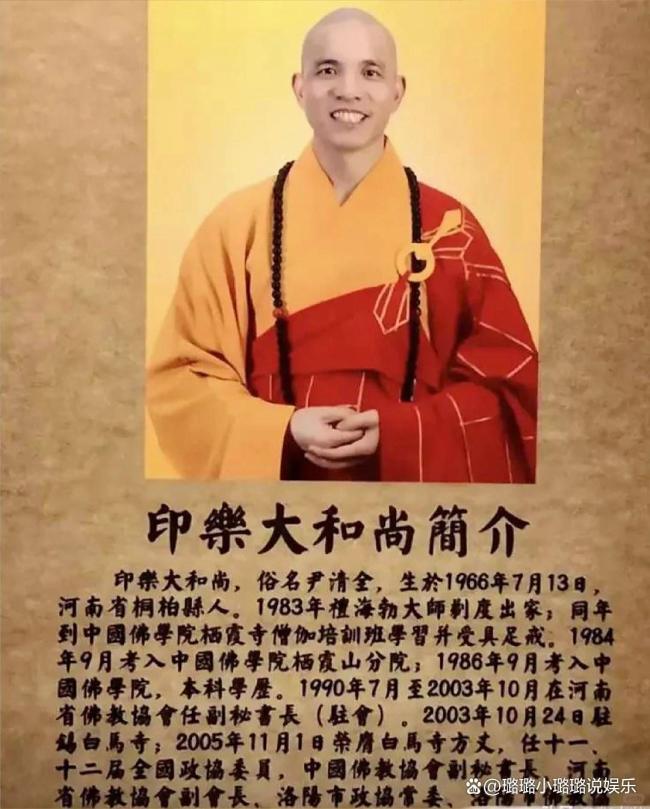 印樂大和尚簡介
印樂大和尚，俗名尹清全，生於1966年7月13日，
河南省桐柏縣人。1983年禮海勃大師剃度出家；同年
到中國佛學院栖霞寺僧伽培訓班學習并受具足戒。1984
年9月考入中國佛學院栖霞山分院；1986年9月考入中
國佛學院，本科學歷。1990年7月至2003年10月在河南
省佛教協會任副秘書長（駐會）。2003年10月24日駐
錫白馬寺；2005年11月1日榮膺白馬寺方丈，任十一、
十二届全國政協委員，中國佛教協會副秘書長、河南
省佛教協會副會長、洛陽市政協常委、洛陽市佛
璐璐小璐璐说娱乐